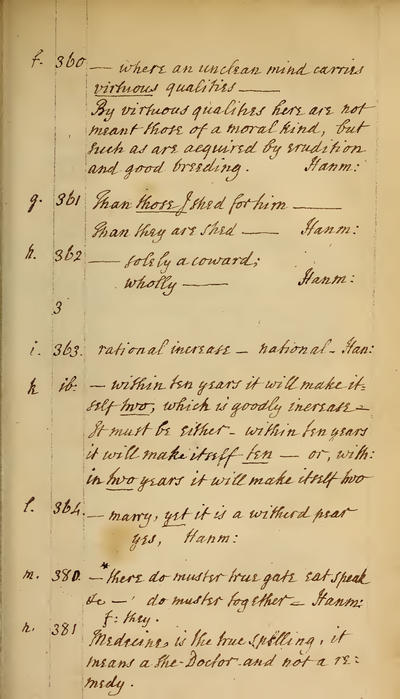 f. 360 — where an unclean mind carries
virtuous qualities —
By virtuous qualities here are not
meant those of a moral kind, but
such as are acquired by erudition
and good breeding. Hanm:
g. 361 Than those I shed for him —
Than they are shed — Hanm:
h. 362 — solely a coward;
wholly — Hanm:
3
i. 363. rational increase — national — Han:
k ib: — within ten years it will make it=
self two, which is goodly increase —
It must be either — within ten years
it will make itself ten — or, with:
in two years it will make itself two
l. 364. — marry, yet it is a witherd pear
yes, Hanm:
m. 380. —* there do muster true gate eat speak
&c — ' do muster together = Hanm:
f: they.
n. 381 Medecine, is the true spelling, it
means a she-Doctor and not a re:
medy.